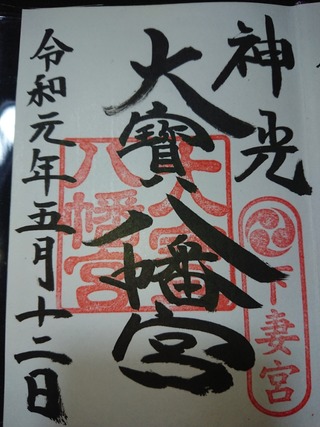 神光
大寳八幡宮
令和元年五月十二日
大寳八幡宮
下妻宮